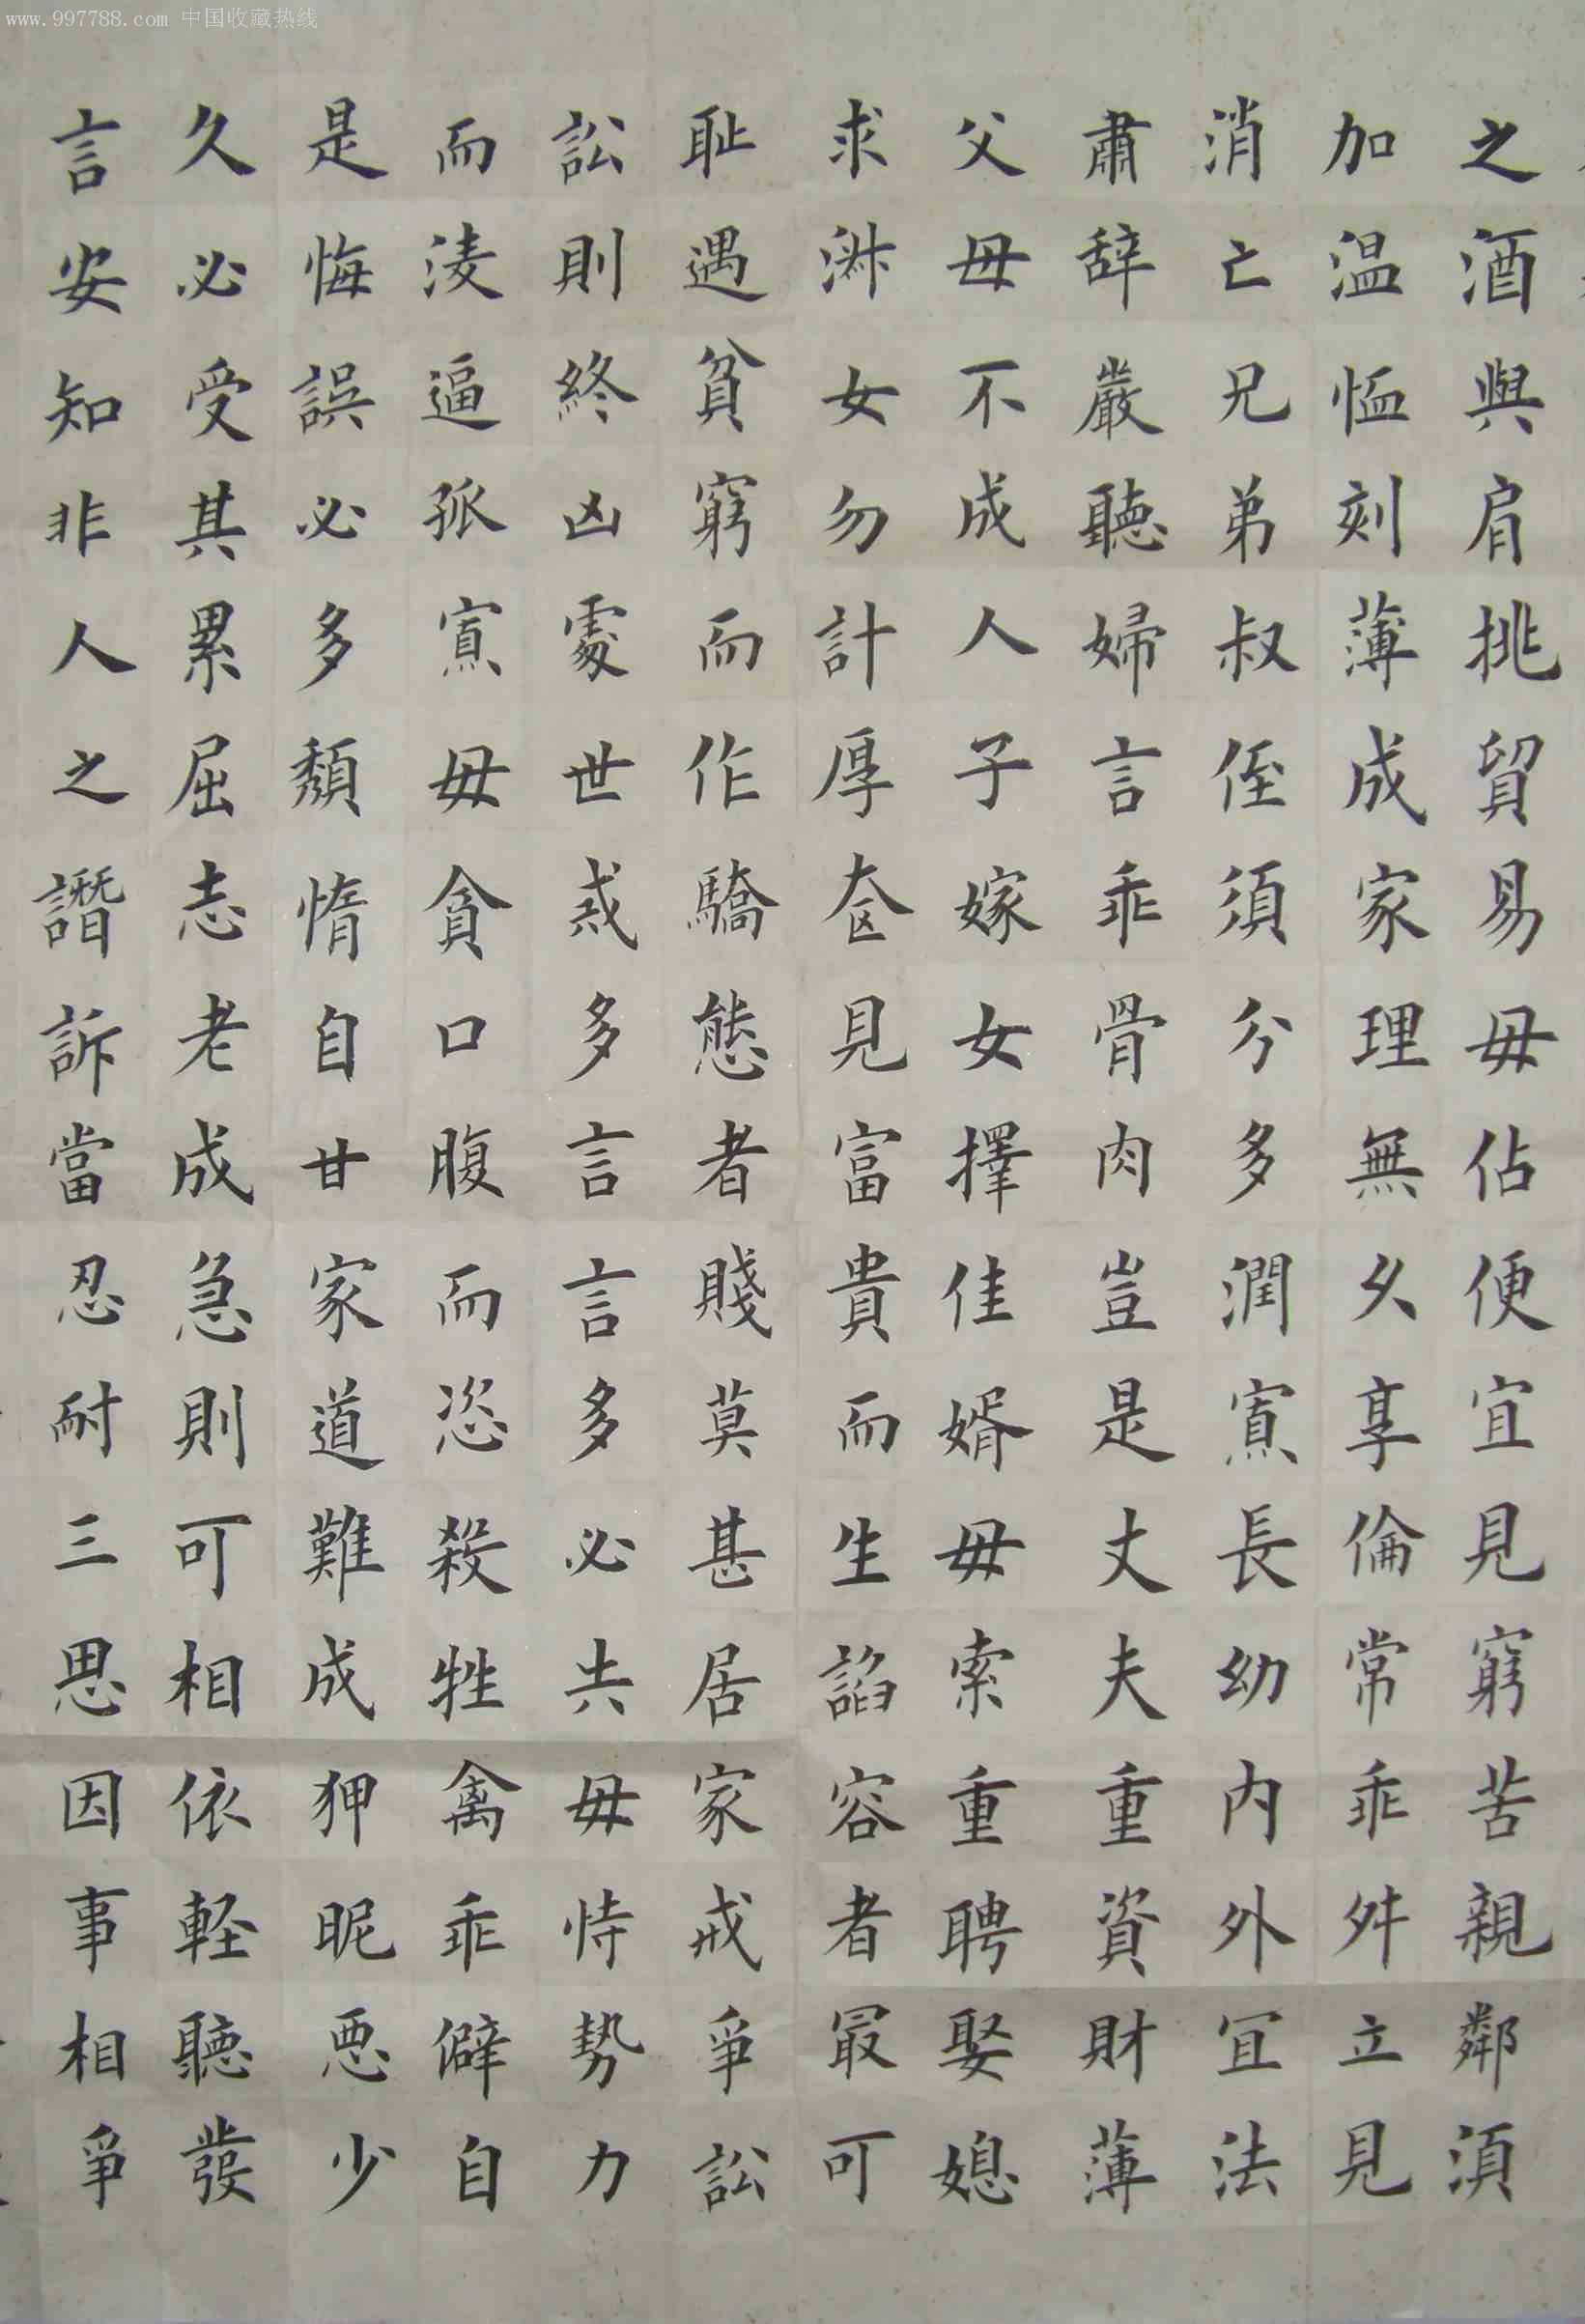 www.997788.com 中国收藏热线
之酒與肩挑貿易毋佔便宜見窮苦親鄰須
加温恤刻薄成家理無久享倫常乖舛立見
消亡兄弟叔侄須分多潤寡長幼内外宜法
肅辞嚴聽婦言乖骨肉豈是丈夫重資財薄
父母不成人子嫁女擇佳婿毋索重聘娶媳
求淑女勿計厚奩見富貴而生諂容者最可
耻遇貧窮而作驕態者賤莫甚居家戒爭訟
訟則終凶處世戒多言言多必失毋恃勢力
而淩逼孤寡毋貪口腹而恣殺牲禽乖僻自
是悔誤必多頹惰自甘家道難成狎昵惡少
久必受其累屈志老成急則可相依軽聽發
言安知非人之譖訴當忍耐三思因事相爭